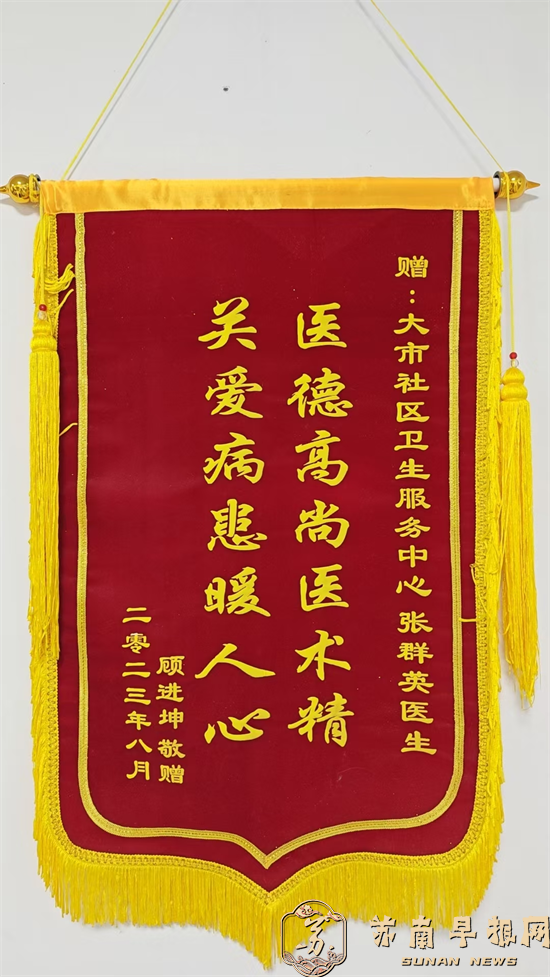 赠：大市社区卫生服务中心 张群英医生
医德高尚医术精
关爱病患暖人心
顾进坤 敬赠
二零二三年八月
苏
苏南早报网
SUNAN NEWS